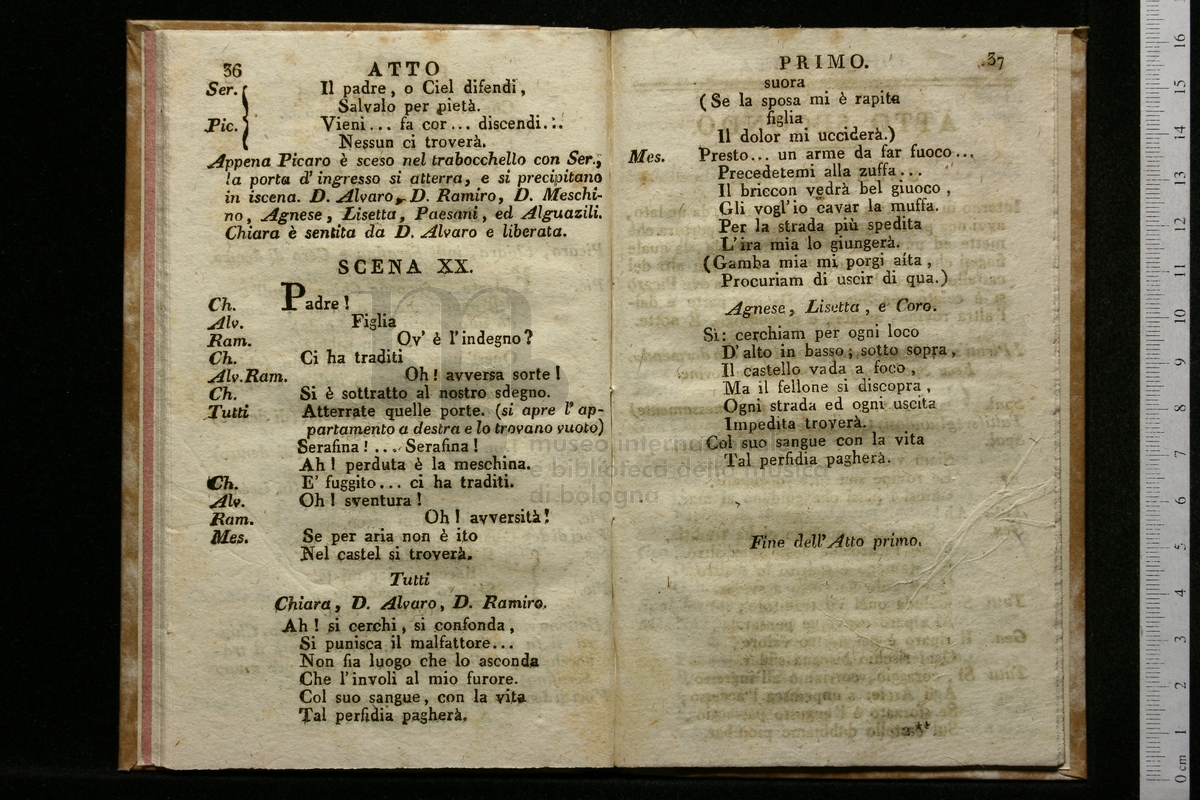 36 ATTO
Ser. Il padre, o Ciel difendi,
Salvalo per pietà.
Pic. Vieni... fa cor... discendi...
Nessun ci troverà.
Appena Picaro è sceso nel trabocchello con Ser.,
la porta d'ingresso si atterra, e si precipitano
in iscena. D. Alvaro, D. Ramiro, D. Meschi-
no, Agnese, Lisetta, Paesani, ed Alguazili.
Chiara è sentita da D. Alvaro e liberata.
SCENA XX.
Ch. Padre!
Alv. Figlia
Ram. Ov' è l'indegno?
Ch. Ci ha traditi
Alv. Ram. Oh! avversa sorte!
Ch. Si è sottratto al nostro sdegno.
Tutti Atterrate quelle porte. (si apre l'ap-
partamento a destra e lo trovano vuoto)
Serafina!... Serafina!
Ah! perduta è la meschina.
Ch. E' fuggito... ci ha traditi.
Alv. Oh! sventura!
Ram. Oh! avversità!
Mes. Se per aria non è ito
Nel castel si troverà.
Tutti
Chiara, D. Alvaro, D. Ramiro.
Ah! si cerchi, si confonda,
Si punisca il malfattore...
Non fia luogo che lo asconda
Che l'involi al mio furore.
Col suo sangue, con la vita
Tal perfidia pagherà.
PRIMO. 37
suora
(Se la sposa mi è rapita
figlia
Il dolor mi ucciderà.)
Mes. Presto... un arme da far fuoco...
Precedetemi alla zuffa...
Il briccon vedrà bel giuoco,
Gli vogl'io cavar la muffa.
Per la strada più spedita
L'ira mia lo giungerà.
(Gamba mia mi porgi aita,
Procuriam di uscir di qua.)
Agnese, Lisetta, e Coro.
Sì: cerchiam per ogni loco
D'alto in basso; sotto sopra,
Il castello vada a foco,
Ma il fellone si discopra,
Ogni strada ed ogni uscita
Impedita troverà.
Col suo sangue con la vita
Tal perfidia pagherà.
Fine dell'Atto primo.
2**
museo internazionale
e biblioteca della musica
di bologna
0 cm 1 2 3 4 5 6 7 8 9 10 11 12 13 14 15 16